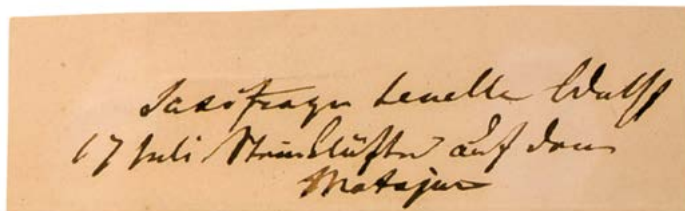 Saxifraga tenella Wulf
17 Juli Steinklüfte auf dem
Matajur